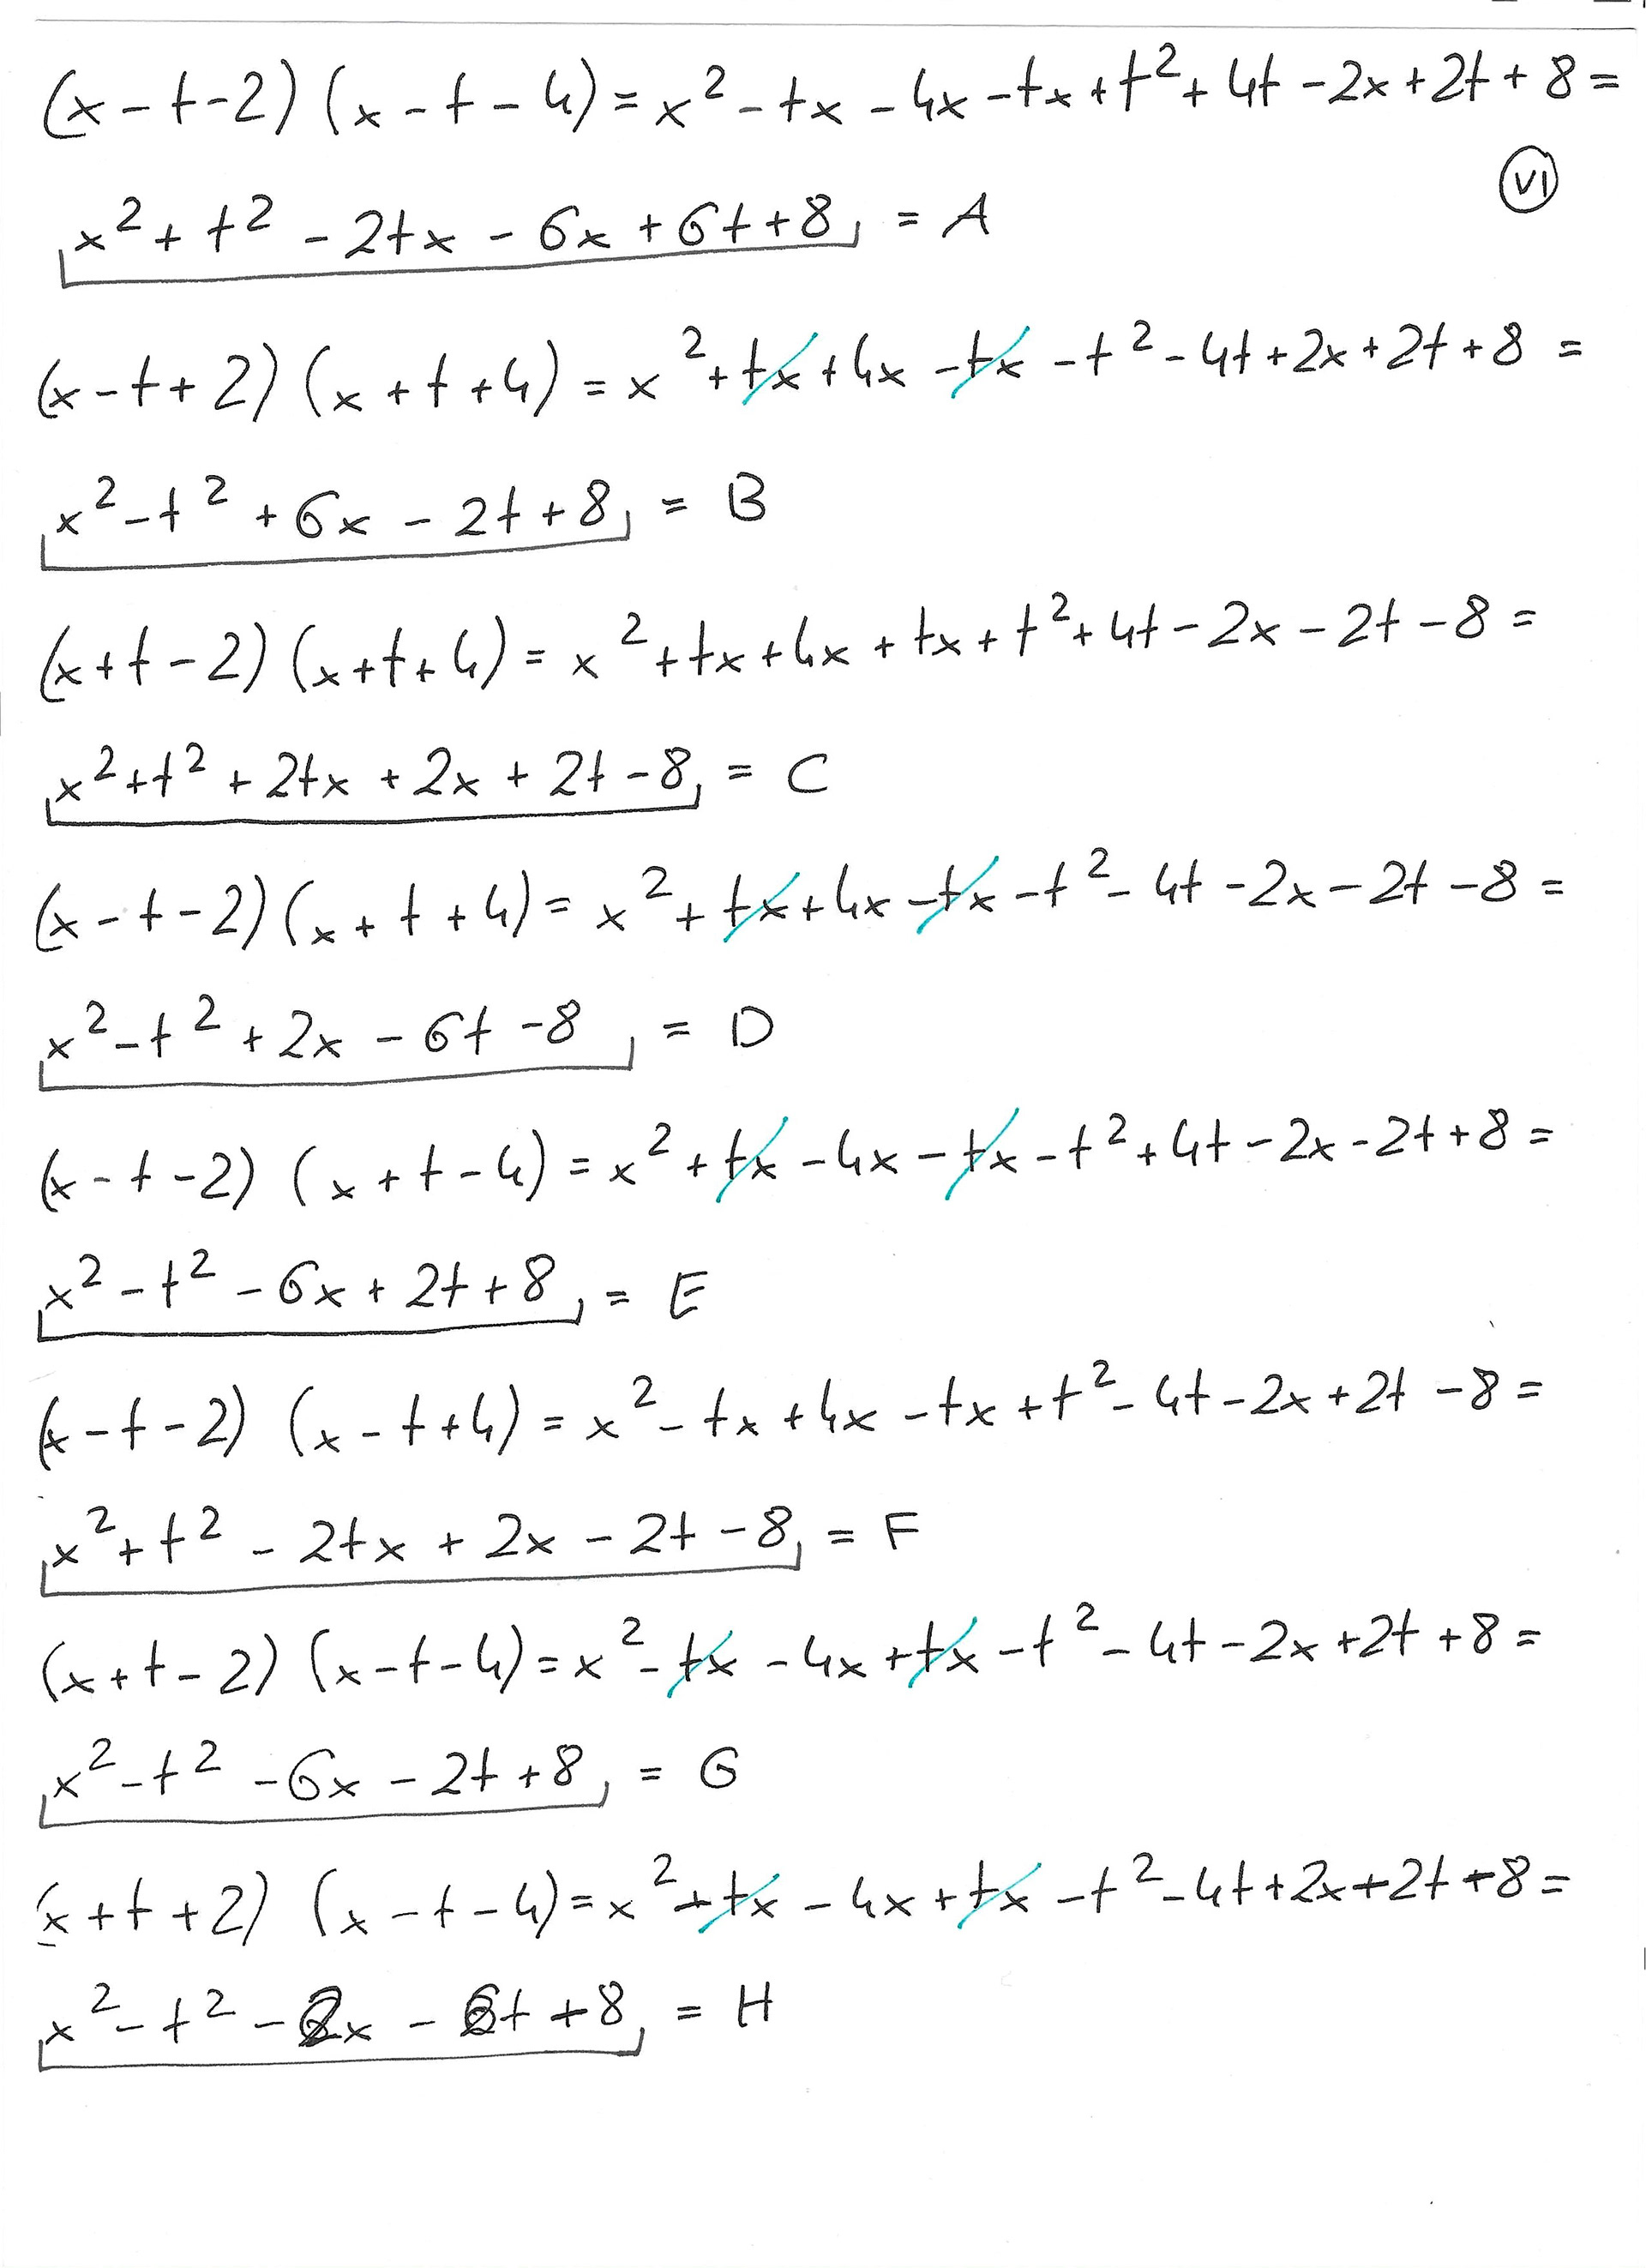 (x-t-2)(x-t-4)=x²-tx-4x-tx+t²+4t-2x+2t+8=
VI
x²+t²-2tx-6x+6t+8=A
(x-t+2)(x+t+4)=x²+tx+4x-tx-t²-4t+2x+2t+8=
x²-t²+6x-2t+8=B
(x+t-2)(x+t+4)=x²+tx+4x+tx+t²+4t-2x-2t-8=
x²+t²+2tx+2x+2t-8=C
(x-t-2)(x+t+4)=x²+tx+4x-tx-t²-4t-2x-2t-8=
x²-t²+2x-6t-8=D
(x-t-2)(x+t-4)=x²+tx-4x-tx-t²+4t-2x-2t+8=
x²-t²-6x+2t+8=E
(x-t-2)(x-t+4)=x²-tx+4x-tx+t²-4t-2x+2t-8=
x²+t²-2tx+2x-2t-8=F
(x+t-2)(x-t-4)=x²-tx-4x+tx-t²-4t-2x+2t+8=
x²-t²-6x-2t+8=G
(x+t+2)(x-t-4)=x²-tx-4x+tx-t²-4t+2x+2t+8=
x²-t²-2x-6t+8=H